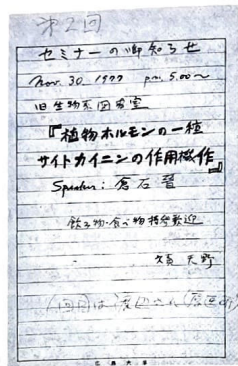 第2回
セミナーの御知らせ
Nov. 30 1977 pm. 5.00〜
旧生物系図書室
『植物ホルモンの一種
サイトカイニンの作用機作』
Speaker: 倉石晉
飲み物・食べ物持参歓迎
文責 天野
広島大学